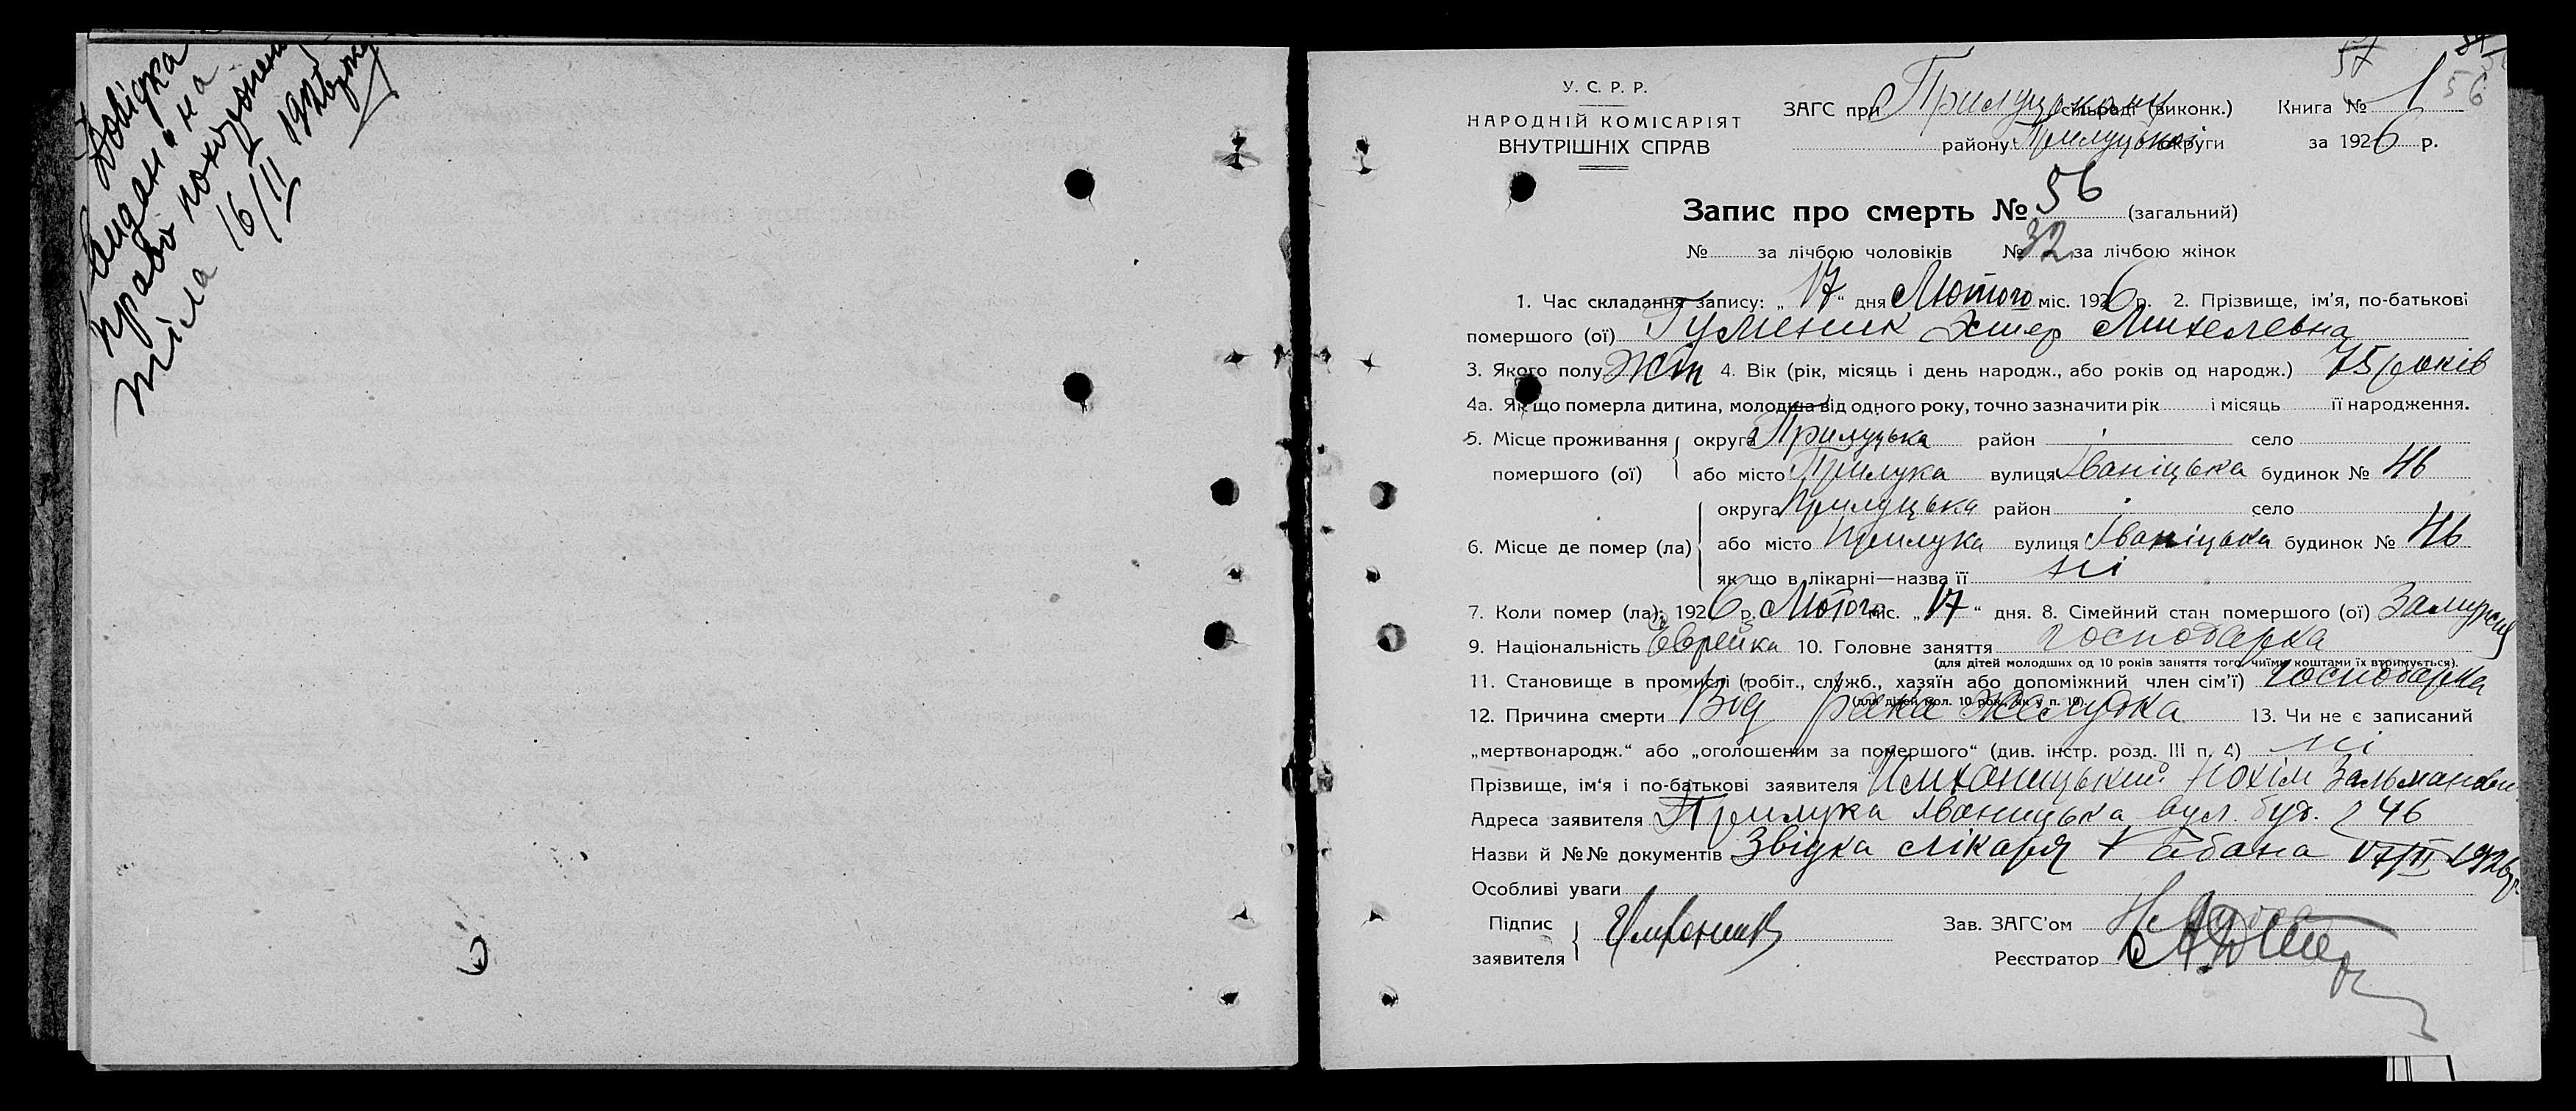 Довідка
видана на
право похоронення
тіла 16/II 1926 року
57
56
У. С. Р. Р.
НАРОДНІЙ КОМІСАРІЯТ
ВНУТРІШНІХ СПРАВ
ЗАГС при Прилуцькому сільраді (виконк.) Книга № 1
району Прилуцької округи за 1926 р.
Запис про смерть № 56 (загальний)
№ за лічбою чоловіків № 32 за лічбою жінок
1. Час складання запису: „17“ дня Лютого міс. 1926 р. 2. Прізвище, ім’я, по-батькові
помершого (ої) Гуменик Эстер Михелевна
3. Якого полу Жін 4. Вік (рік, місяць і день народж., або років од народж.) 75 років
4а. Як що померла дитина, молодша від одного року, точно зазначити рік і місяць її народження.
5. Місце проживання округа Прилуцька район село
помершого (ої) або місто Прилука вулиця Іваніцька будинок № 46
округа Прилуцька район село
6. Місце де помер (ла) або місто Прилука вулиця Іваніцька будинок № 46
як що в лікарні—назва її ні
7. Коли помер (ла): 1926 р. Лютого міс. „17“ дня. 8. Сімейний стан помершого (ої) Замужня
9. Національність Єврейка 10. Головне заняття господарка
(для дітей молодших од 10 років заняття того, чиїми коштами їх втримується).
11. Становище в промислі (робіт., служб., хазяїн або допоміжний член сім’ї) господарка
(для дітей мол. 10 рок. як у п. 10).
12. Причина смерти Від рака желудка 13. Чи не є записаний
„мертвонародж.“ або „оголошеним за помершого“ (див. інстр. розд. III п. 4) ні
Прізвище, ім‘я і по-батькові заявителя Нохім Зальманович
Адреса заявителя Прилука Іваницька вул. буд. 46
Назви й №№ документів Звідка лікаря Кабана 17/II 1926 р.
Особливі уваги
Підпис
заявителя
Зав. ЗАГС’ом
Реєстратор